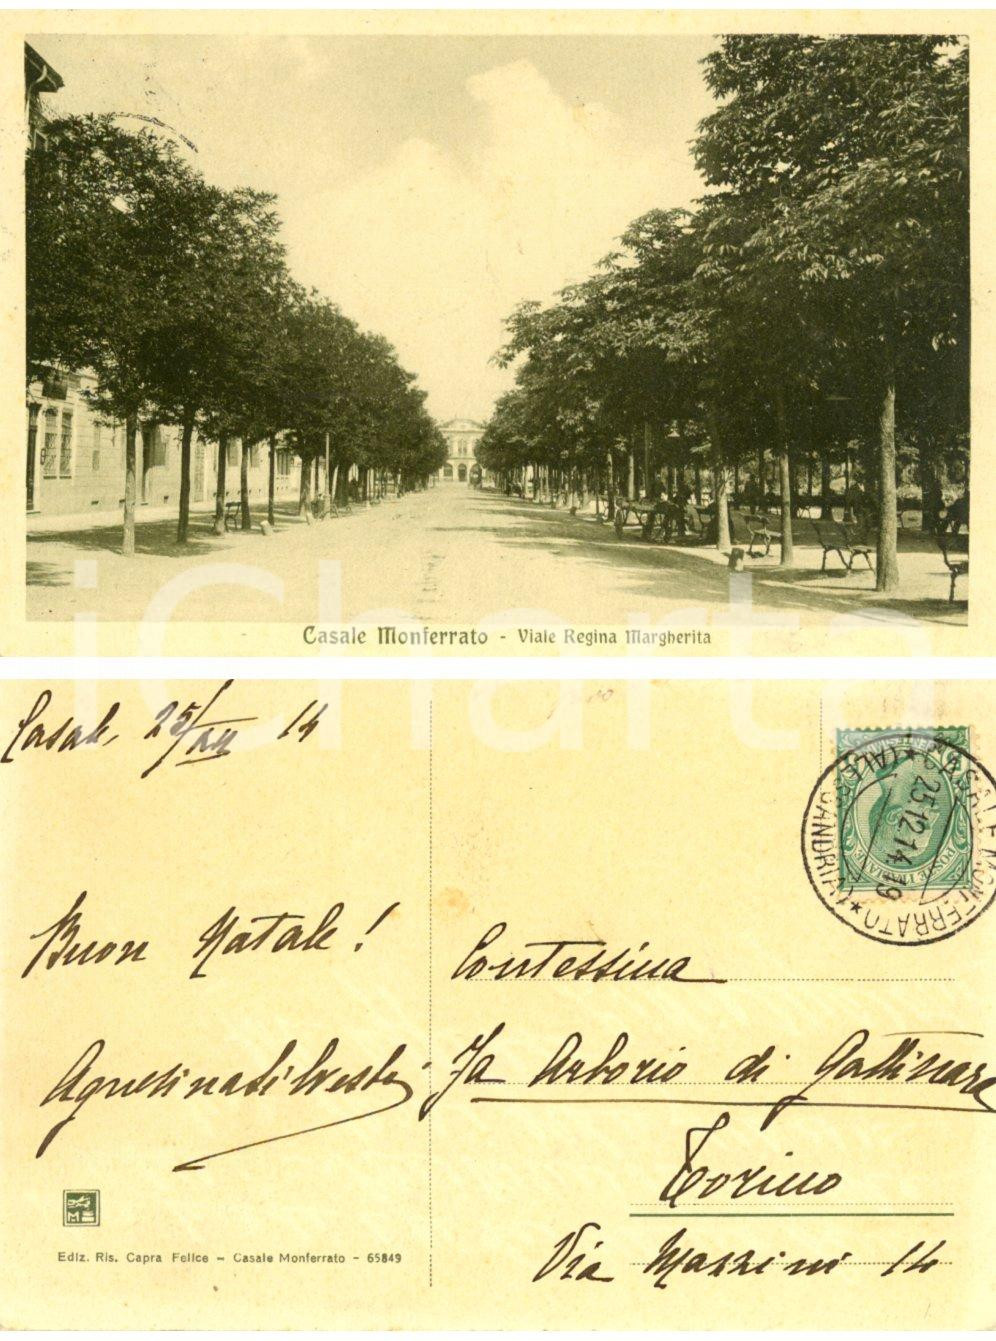 Casale Monferrato - Viale Regina Margherita
iCharta
Casale, 25/XII 14
Buon Natale!
Agnesina Silvestri
POSTE ITALIANE
CASALE MONFERRATO
(ALESSANDRIA)
25.12.14.19
Contessina
Ja Arborio di Gattinara
Torino
Via Mazzini 14
Ediz. Ris. Capra Felice – Casale Monferrato - 65849